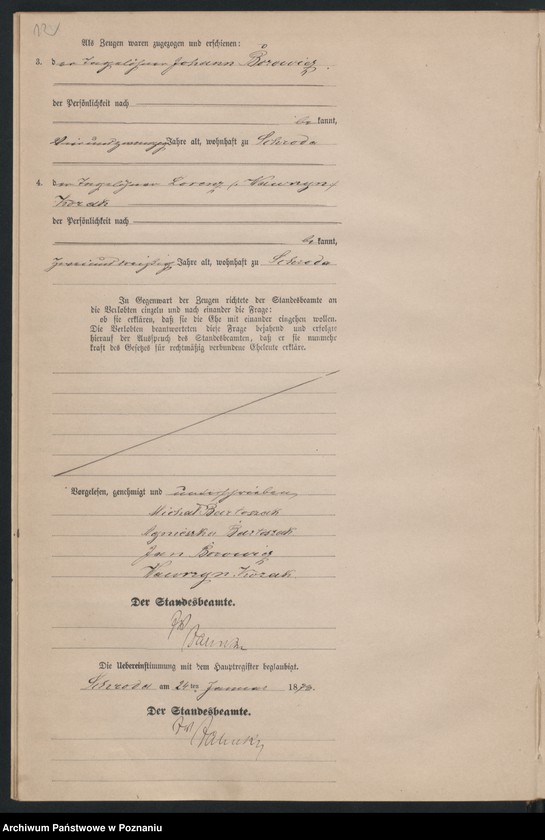 Als Zeugen waren zugezogen und erschienen:
3. der Tagelöhner Johann Borowicz
der Persönlichkeit nach
bekannt,
Jahre alt, wohnhaft zu Schroda
4. der Tagelöhner Lorenz (Wawrzyn)
Kozak
der Persönlichkeit nach
bekannt,
zweiunddreißig Jahre alt, wohnhaft zu Schroda
In Gegenwart der Zeugen richtete der Standesbeamte an
die Verlobten einzeln und nach einander die Frage:
ob sie erklären, daß sie die Ehe mit einander eingehen wollen.
Die Verlobten beantworteten diese Frage bejahend und erfolgte
hierauf der Ausspruch des Standesbeamten, daß er sie nunmehr
kraft des Gesetzes für rechtmäßig verbundene Eheleute erkläre.
Vorgelesen, genehmigt und unterschrieben
Michał Bartoszak
Agnieszka Bartoszak
Jan Borowicz
Wawrzyn Kozak
Der Standesbeamte.
Die Uebereinstimmung mit dem Hauptregister beglaubigt.
Schroda am 24ten Januar 187
Der Standesbeamte.
Archiwum Państwowe w Poznaniu